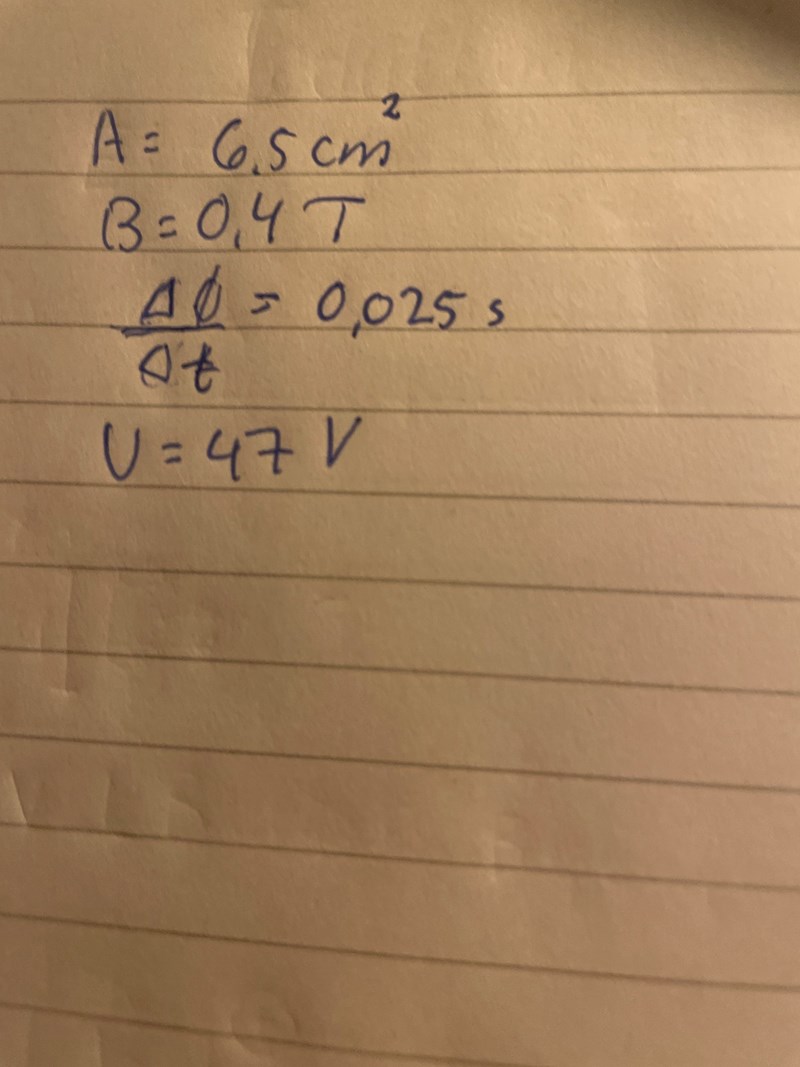 A = 6,5 cm²
B = 0,4 T
ΔΦ = 0,025 s
Δt
U = 47 V